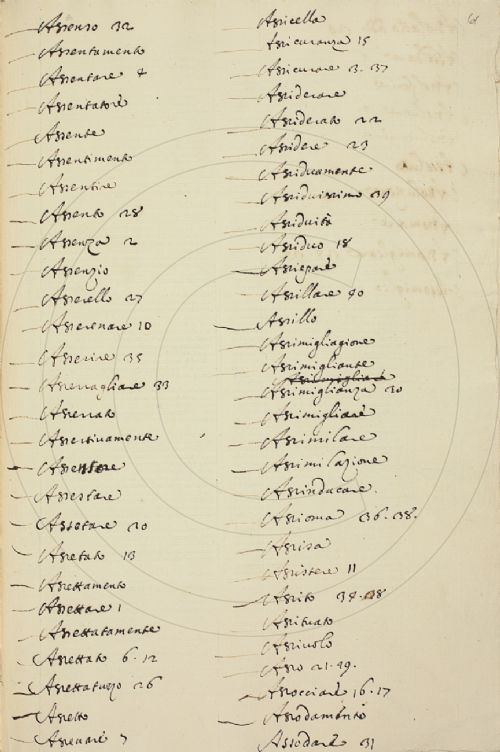 Assenso 32
Assentamento
Assentare 8
Assentatore
Assente
Assentimento
Assentire
Assento 28
Assenza 2
Assenzio
Asserello 27
Asserenare 10
Asserire 35
Asserragliare 33
Asserrato
Assertivamente
Assessare
Assetare 20
Assetato 13
Assettamento
Assettare 1
Assettatamente
Assettato 6. 12
Assettatuzzo 26
Assetto
Assevare 7
Assicella
Assicuranza 15
Assicurare 3. 37
Assiderare
Assiderato 22
Assidere 23
Assiduamente
Assiduissimo 39
Assiduità
Assiduo 18
Assiepare
Assillare 40
Assillo
Assimigliagione
Assimigliante
Assimiglianza 30
Assimigliare
Assimilare
Assimilazione
Assindacare.
Assioma 36. 38.
Assisa
Assistere 11
Assito
Assituato
Assiuolo
Asso 21. 29.
Assocciare 16. 17
Assodamento
Assodare 31